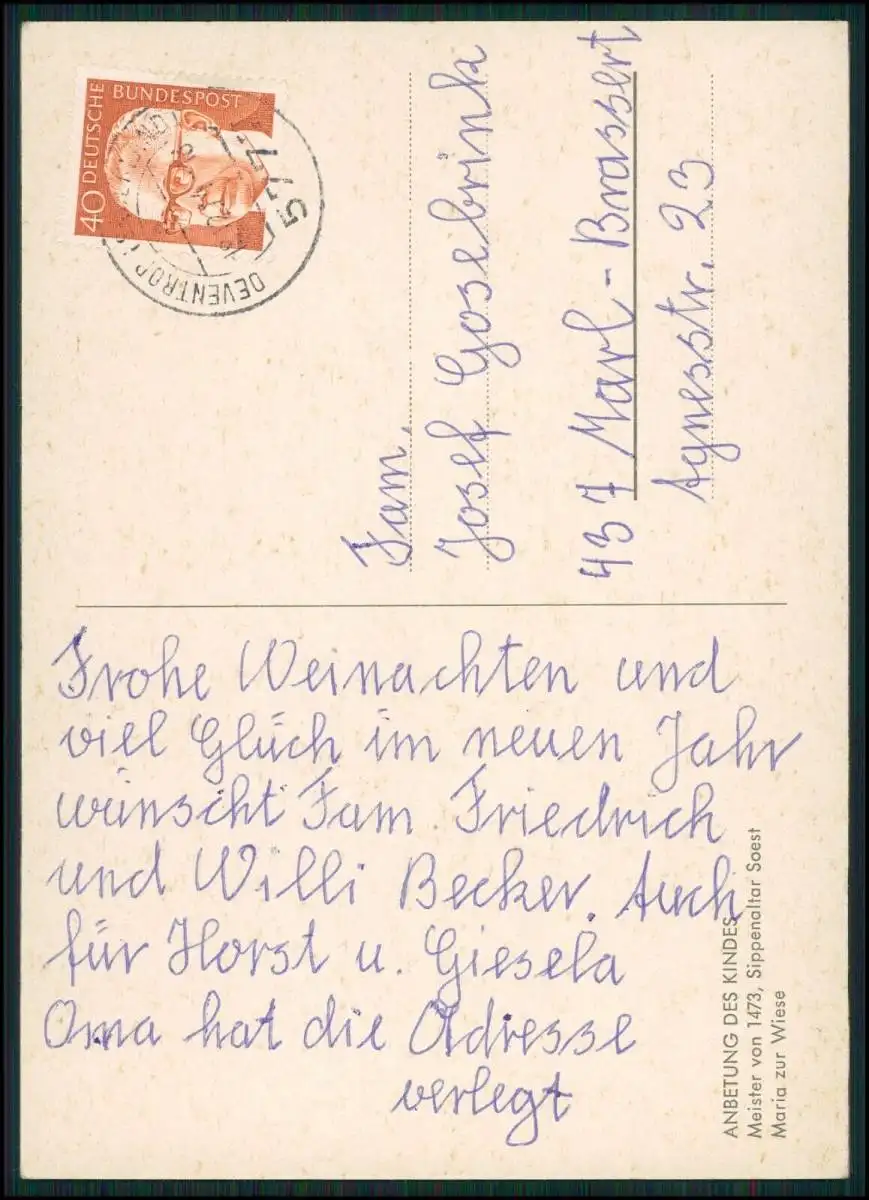 Frohe Weinachten und
viel Glück im neuen Jahr
wünscht Fam. Friedrich
und Willi Becker. Auch
für Horst u. Giesela
Oma hat die Adresse
verlegt
Fam.
Josef Gosebrink
437 Marl-Brassert
Agnesstr. 23
40 DEUTSCHE BUNDESPOST
5771 DEVENTROP
ANBETUNG DES KINDES
Meister von 1473, Sippenaltar Soest
Maria zur Wiese